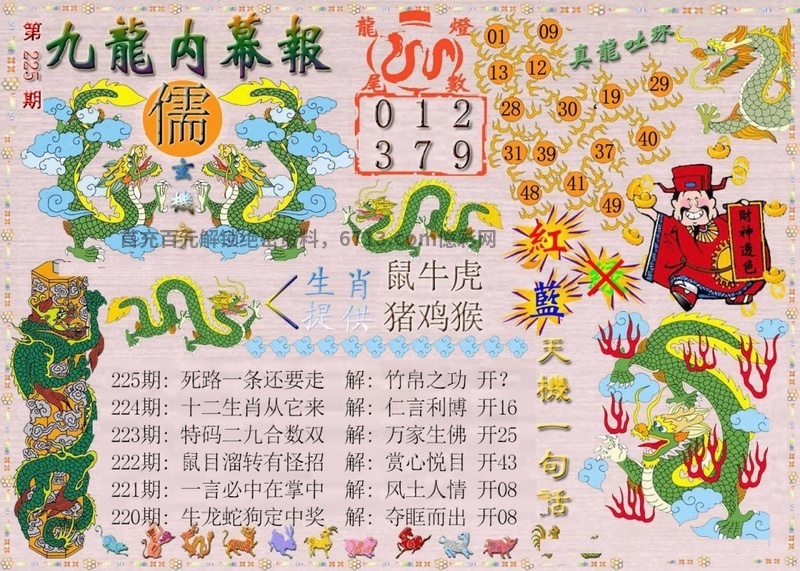 第225期
九龍内幕報
儒
玄機字
龍燈
尾數
0 1 2
3 7 9
真龍吐珠
01 09
13 12
28 30 19 29
31 39 37 40
48 41 49
財神透色
紅
藍
生肖
提供
鼠牛虎
猪鸡猴
天機一句話
225期: 死路一条还要走 解: 竹帛之功 开?
224期: 十二生肖从它来 解: 仁言利博 开16
223期: 特码二九合数双 解: 万家生佛 开25
222期: 鼠目溜转有怪招 解: 赏心悦目 开43
221期: 一言必中在掌中 解: 风土人情 开08
220期: 牛龙蛇狗定中奖 解: 夺眶而出 开08